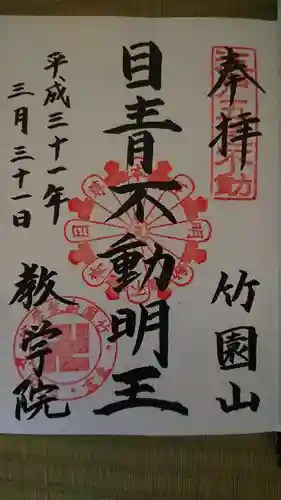 奉拝
竹園山
目青不動明王
平成三十一年
三月三十一日
教学院